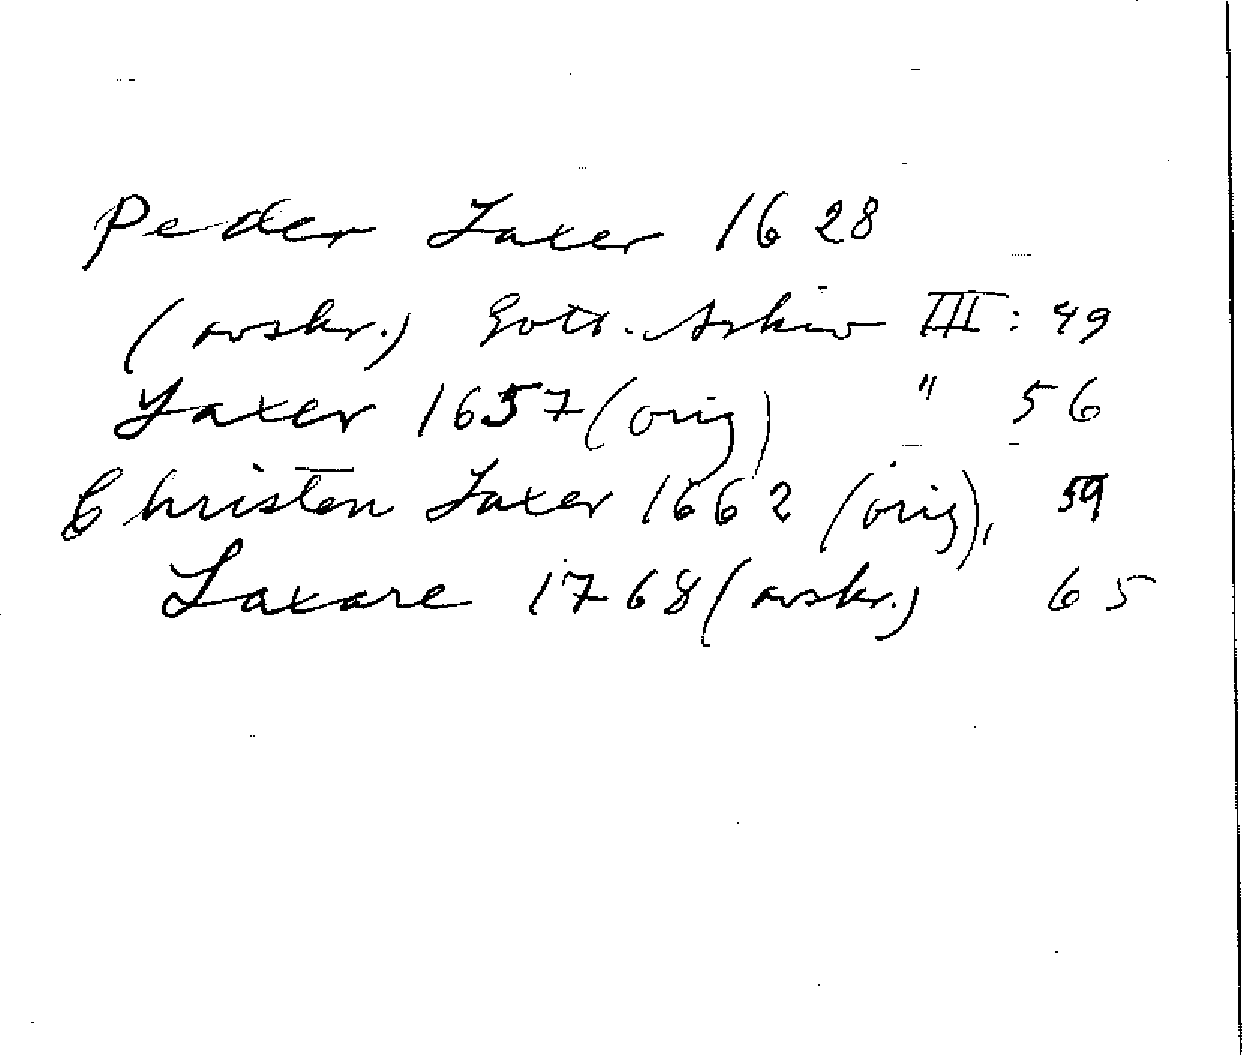 Peder Laxer 1628
(avskr.) Gotl. Arkiv III: 49
Laxer 1657 (orig) " 56
Christen Laxer 1662 (orig), 59
Laxare 1768 (avskr.) 65